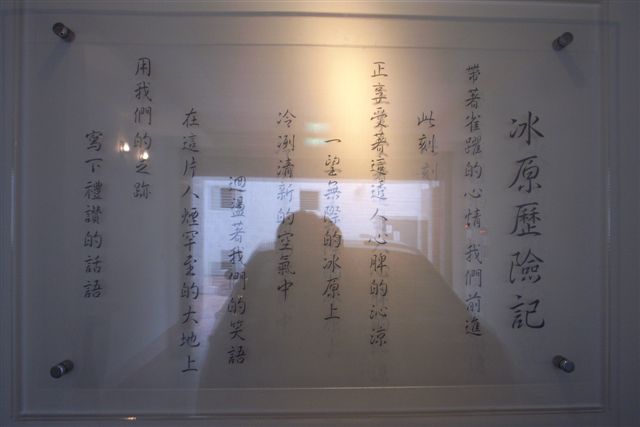 冰原歷險記
帶著雀躍的心情我們前進
此刻刻
正享受著這透人心脾的沁涼
一望無際的冰原上
冷冽清新的空氣中
迴盪著我們的笑語
在這片人煙罕至的大地上
用我們的之跡
寫下禮讚的話語